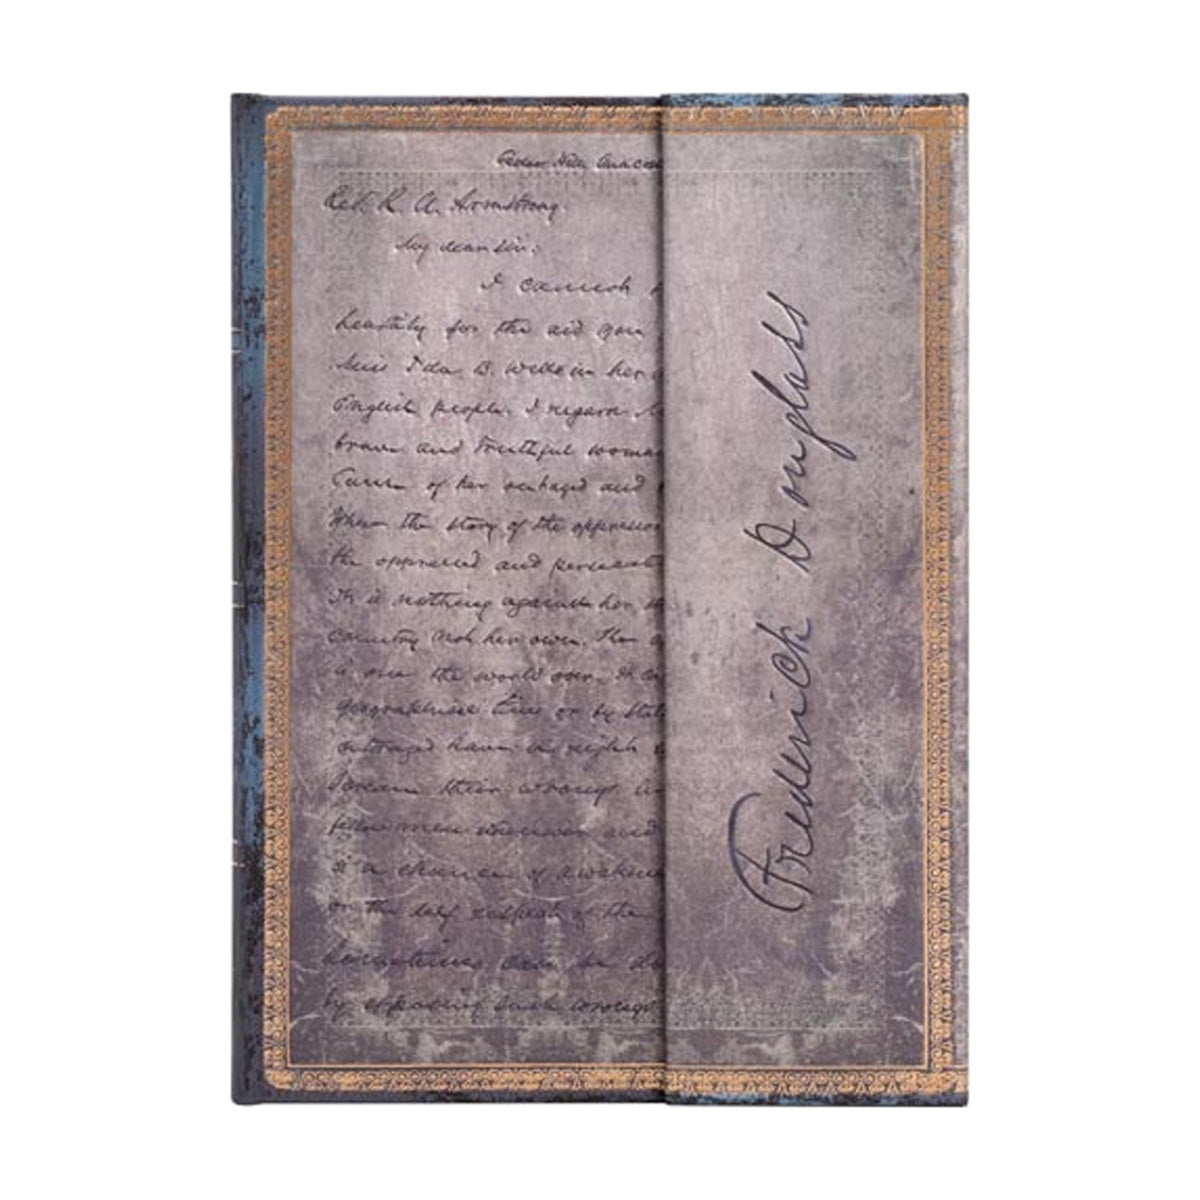 Cedar Hill Anacos
Rev. R. A. Armstrong.
My dear sir:
I cannot
heartily for the aid you
Miss Ida B. Wells in her
English people. I regard
brave and truthful woma
Cause of her outraged and
When the story of the oppressor
the oppressed and persecut
It is nothing against her
country not her own. The
is over the world over. It
geographical lines or by
outraged have a right
their wrongs
men wherever and
is a chance of awaken
on the self respect of the
sometimes can be
by exposing such wrongs
Frederick Douglass